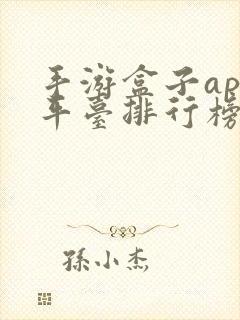 手游盒子ap
平臺排行榜
孫小杰